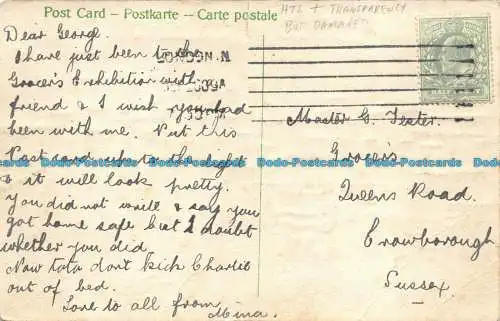 Post Card - Postkarte - Carte postale
HTL + TRANSPARENCY
BUT DAMAGED
LONDON. N
Dear George.
I have just been to the
Grocer's Exhibition with
friend & I wish you had
been with me. Put this
Post card up to the light
& it will look pretty.
You did not write & say you
got home safe but I doubt
whether you did.
Now tata don't kick Charlie
out of bed.
Love to all from
Mina.
Master G. Tester.
Grocer's
Queens Road.
Crowborough
Sussex
Dodo-Postcards Dodo-Postcards Dodo-Postcards Dodo-Postcards Dodo-Postcards